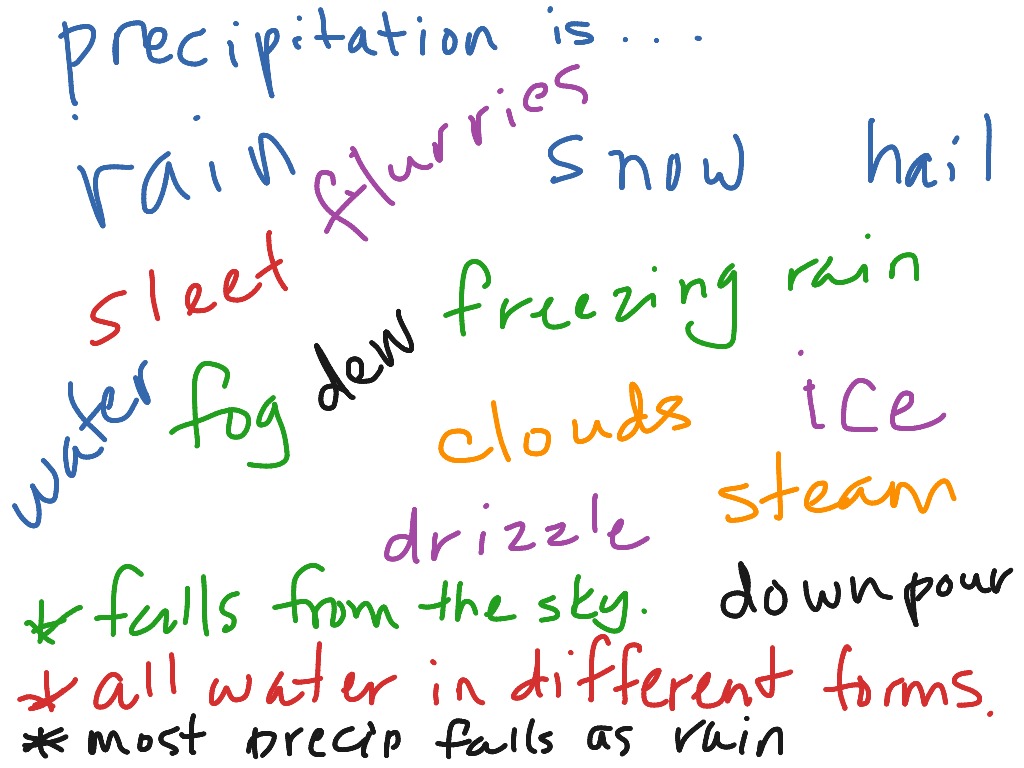 precipitation is...
rain flurries snow hail
sleet freezing rain
water fog dew clouds ice
drizzle steam
* falls from the sky. downpour
* all water in different forms.
* most precip falls as rain